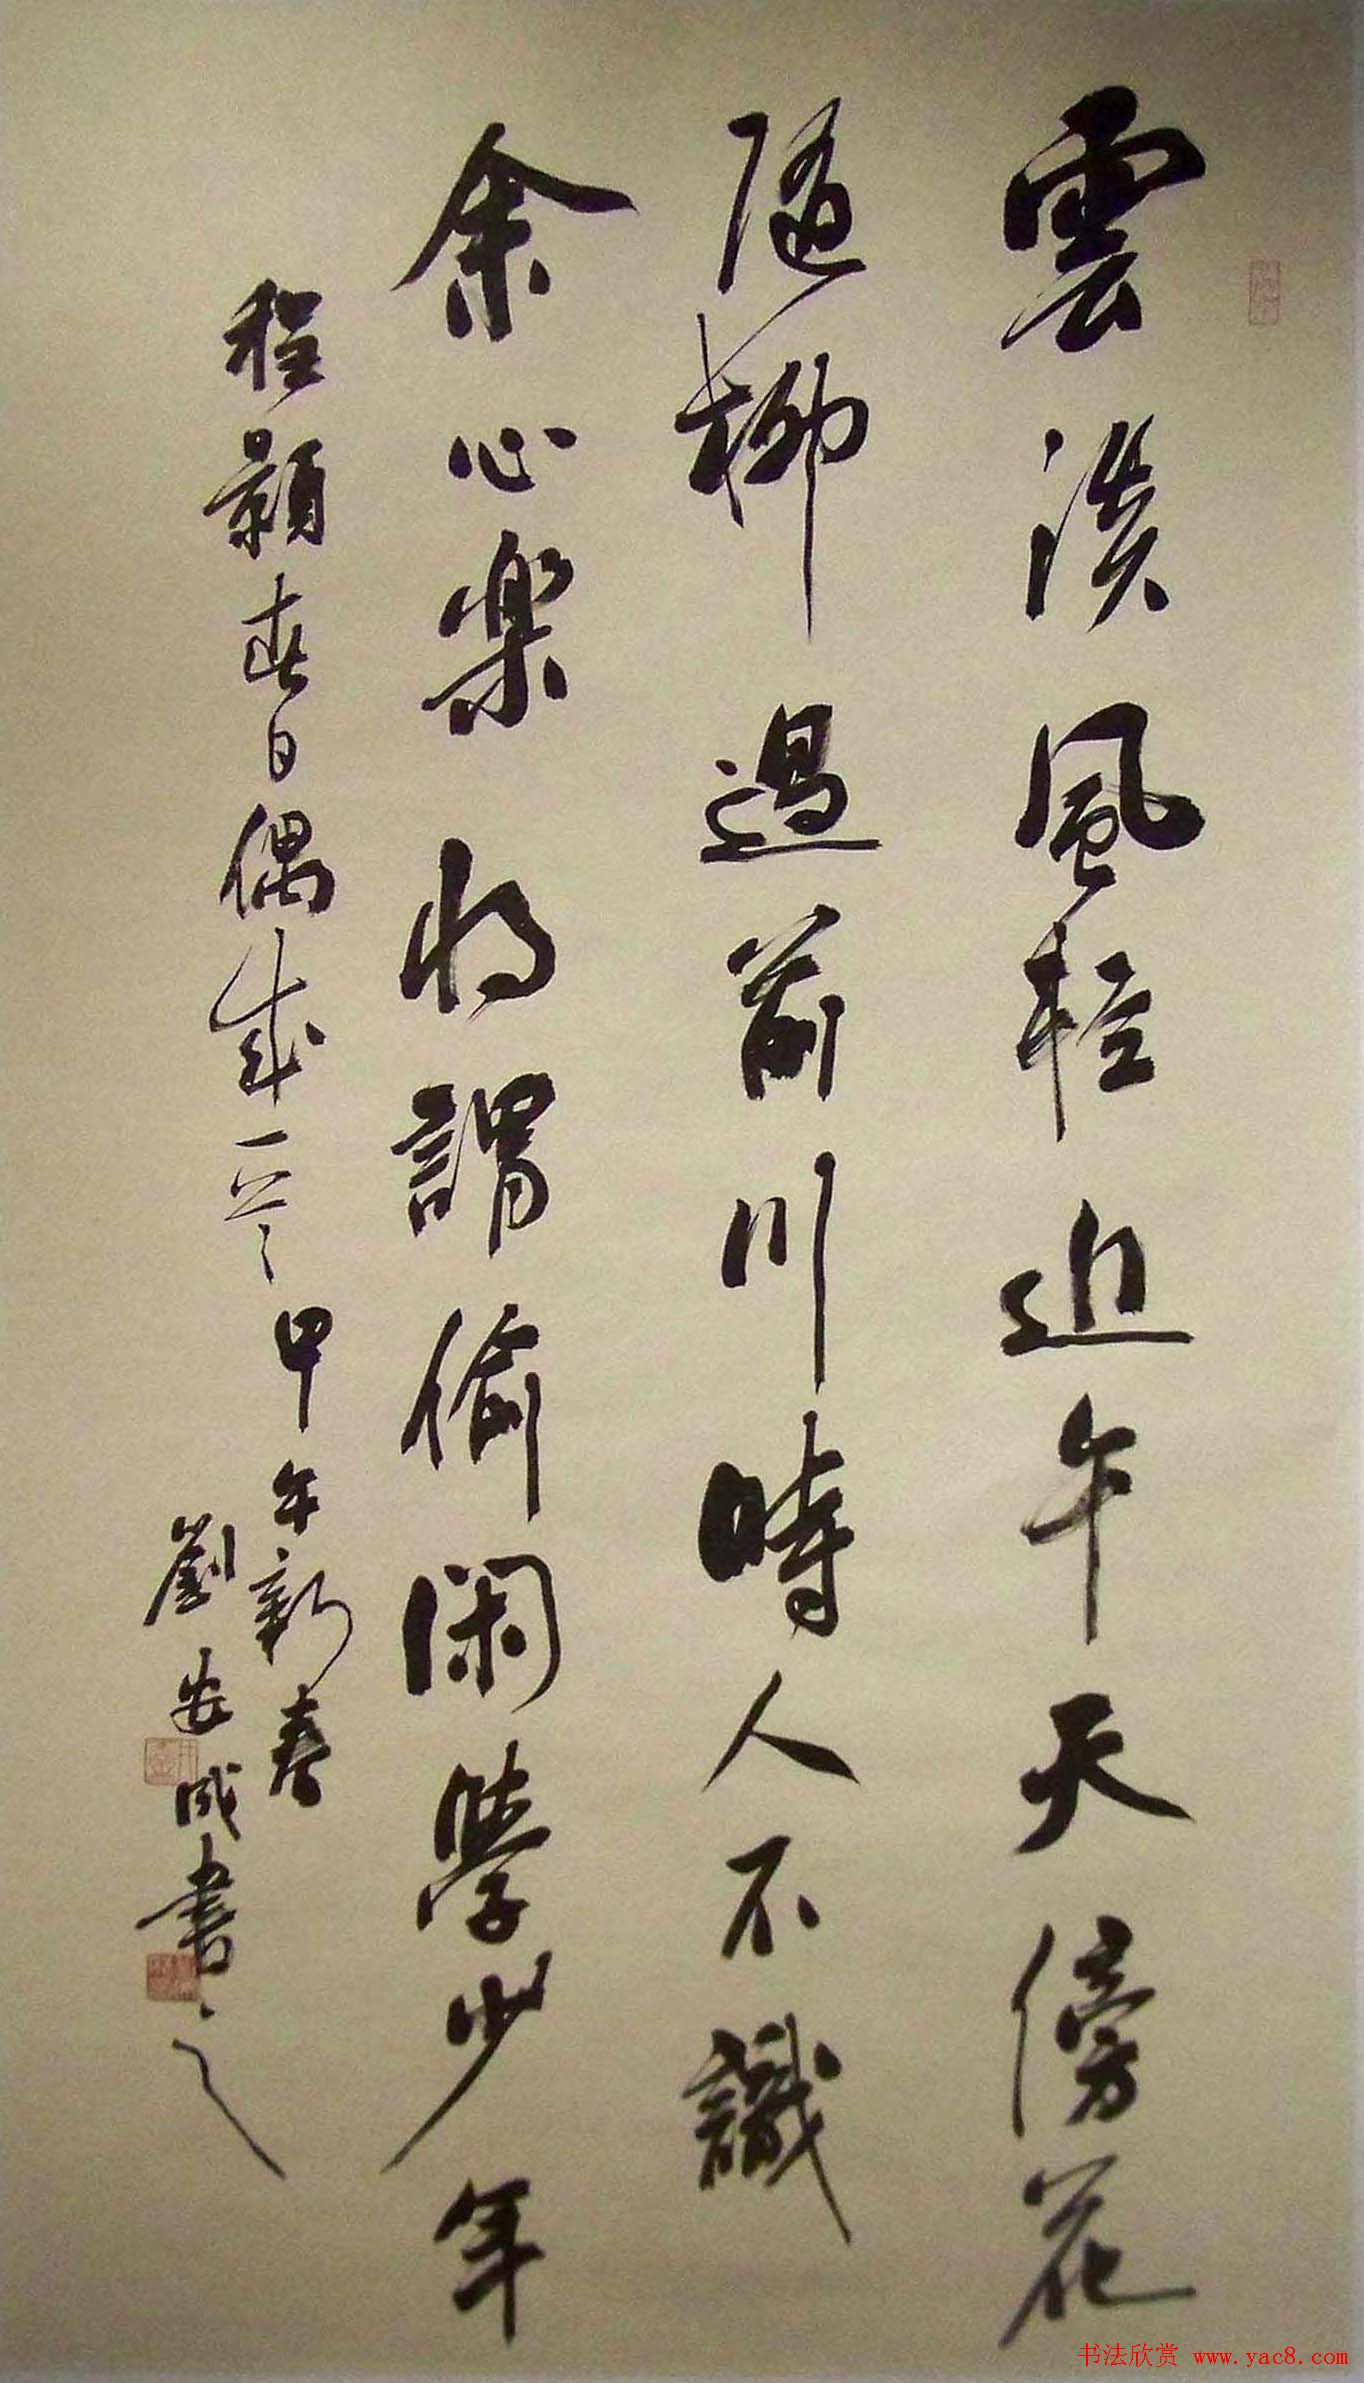 雲淡風輕近午天傍花
隨柳過前川時人不識
余心樂將謂偷閑學少年
程顥春日偶成一首甲午新春
劉安成書之
书法欣赏 www.yac8.com